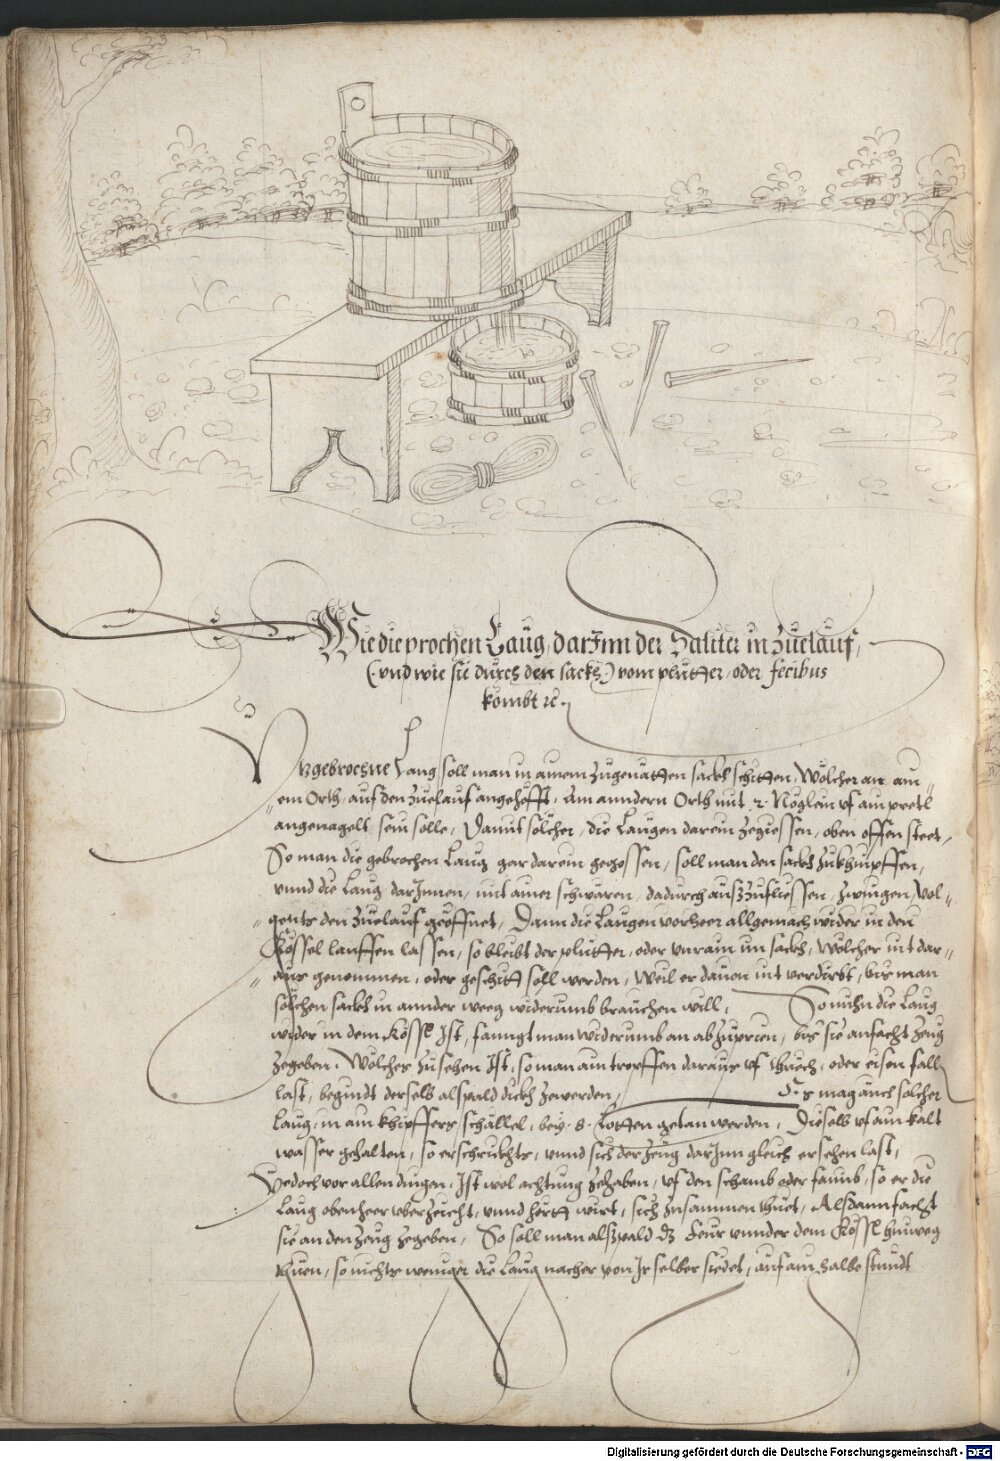 Wie die prochen Laug, darJnn der Saliter in Zuelauf,
(: und wie sie durchs den sackh :) vom plutter, oder fecibus
kombt ꝛc.
Jtzgebrochne Laug soll man in ainem Zugenätten sackh schitten, Wölcher an ain„
„em Orth, auf den Zuelauf angehefft, Am anndern Orth mit 2. Nöglein uf ain pretl
angenagelt sein solle, Damit solcher, die Laugen darein Zegiessen, oben offen steet,
So man die gebrochen Laug gar darein gegossen, soll man den sackh Zukhnüpffen,
unnd die Laug darJnnen, mit ainer schwären, dadurch ausZufliessen, Zwingen, Vol„
„gents den Zuelauf geöffnet, Dann die Laugen vorheer allgemach wider in den
Kössel lauffen lassen, so bleibt der plutter, oder unrain im sackh, Wölcher nit dar„
„aus genommen, oder geschitt soll werden, Weil er dauon nit verdirbt, bis man
solchen sackh in annder weeg widerumb brauchen will, So nuhn die Laug
wider in dem Kössl Jst, fanngt man widerumb an abZusieden, bis sie anfacht Zeug
Zegeben, Wölches Zusehen Jst, so man ain tropffen daraus uf Thuech, oder eisen fall
last, begindt derselb alspald dickh Zewerden, Es mag auch solcher
Laug, in ain khipffers schällel, bey 8. Lotten getan werden, Dieselb uf ain kalt
wasser gehalten, so erschrickhts, unnd sich der Zeug darJnn gleich ersehen last,
Yedoch vor allen dingen, Jst wol achtung Zehaben, uf den schamb oder faimb, so er die
Laug oben heer uberZeücht, unnd hertt wirt, sich Zusammen thuet, Alsdann facht
sie an den Zeug Zegeben, So soll man alspald dz Feur unnder dem Kössl hinweg
thuen, so nichts weniger die Laug nacher von Jr selber siedet, auf ain halbe stundt
Digitalisierung gefördert durch die Deutsche Forschungsgemeinschaft - DFG